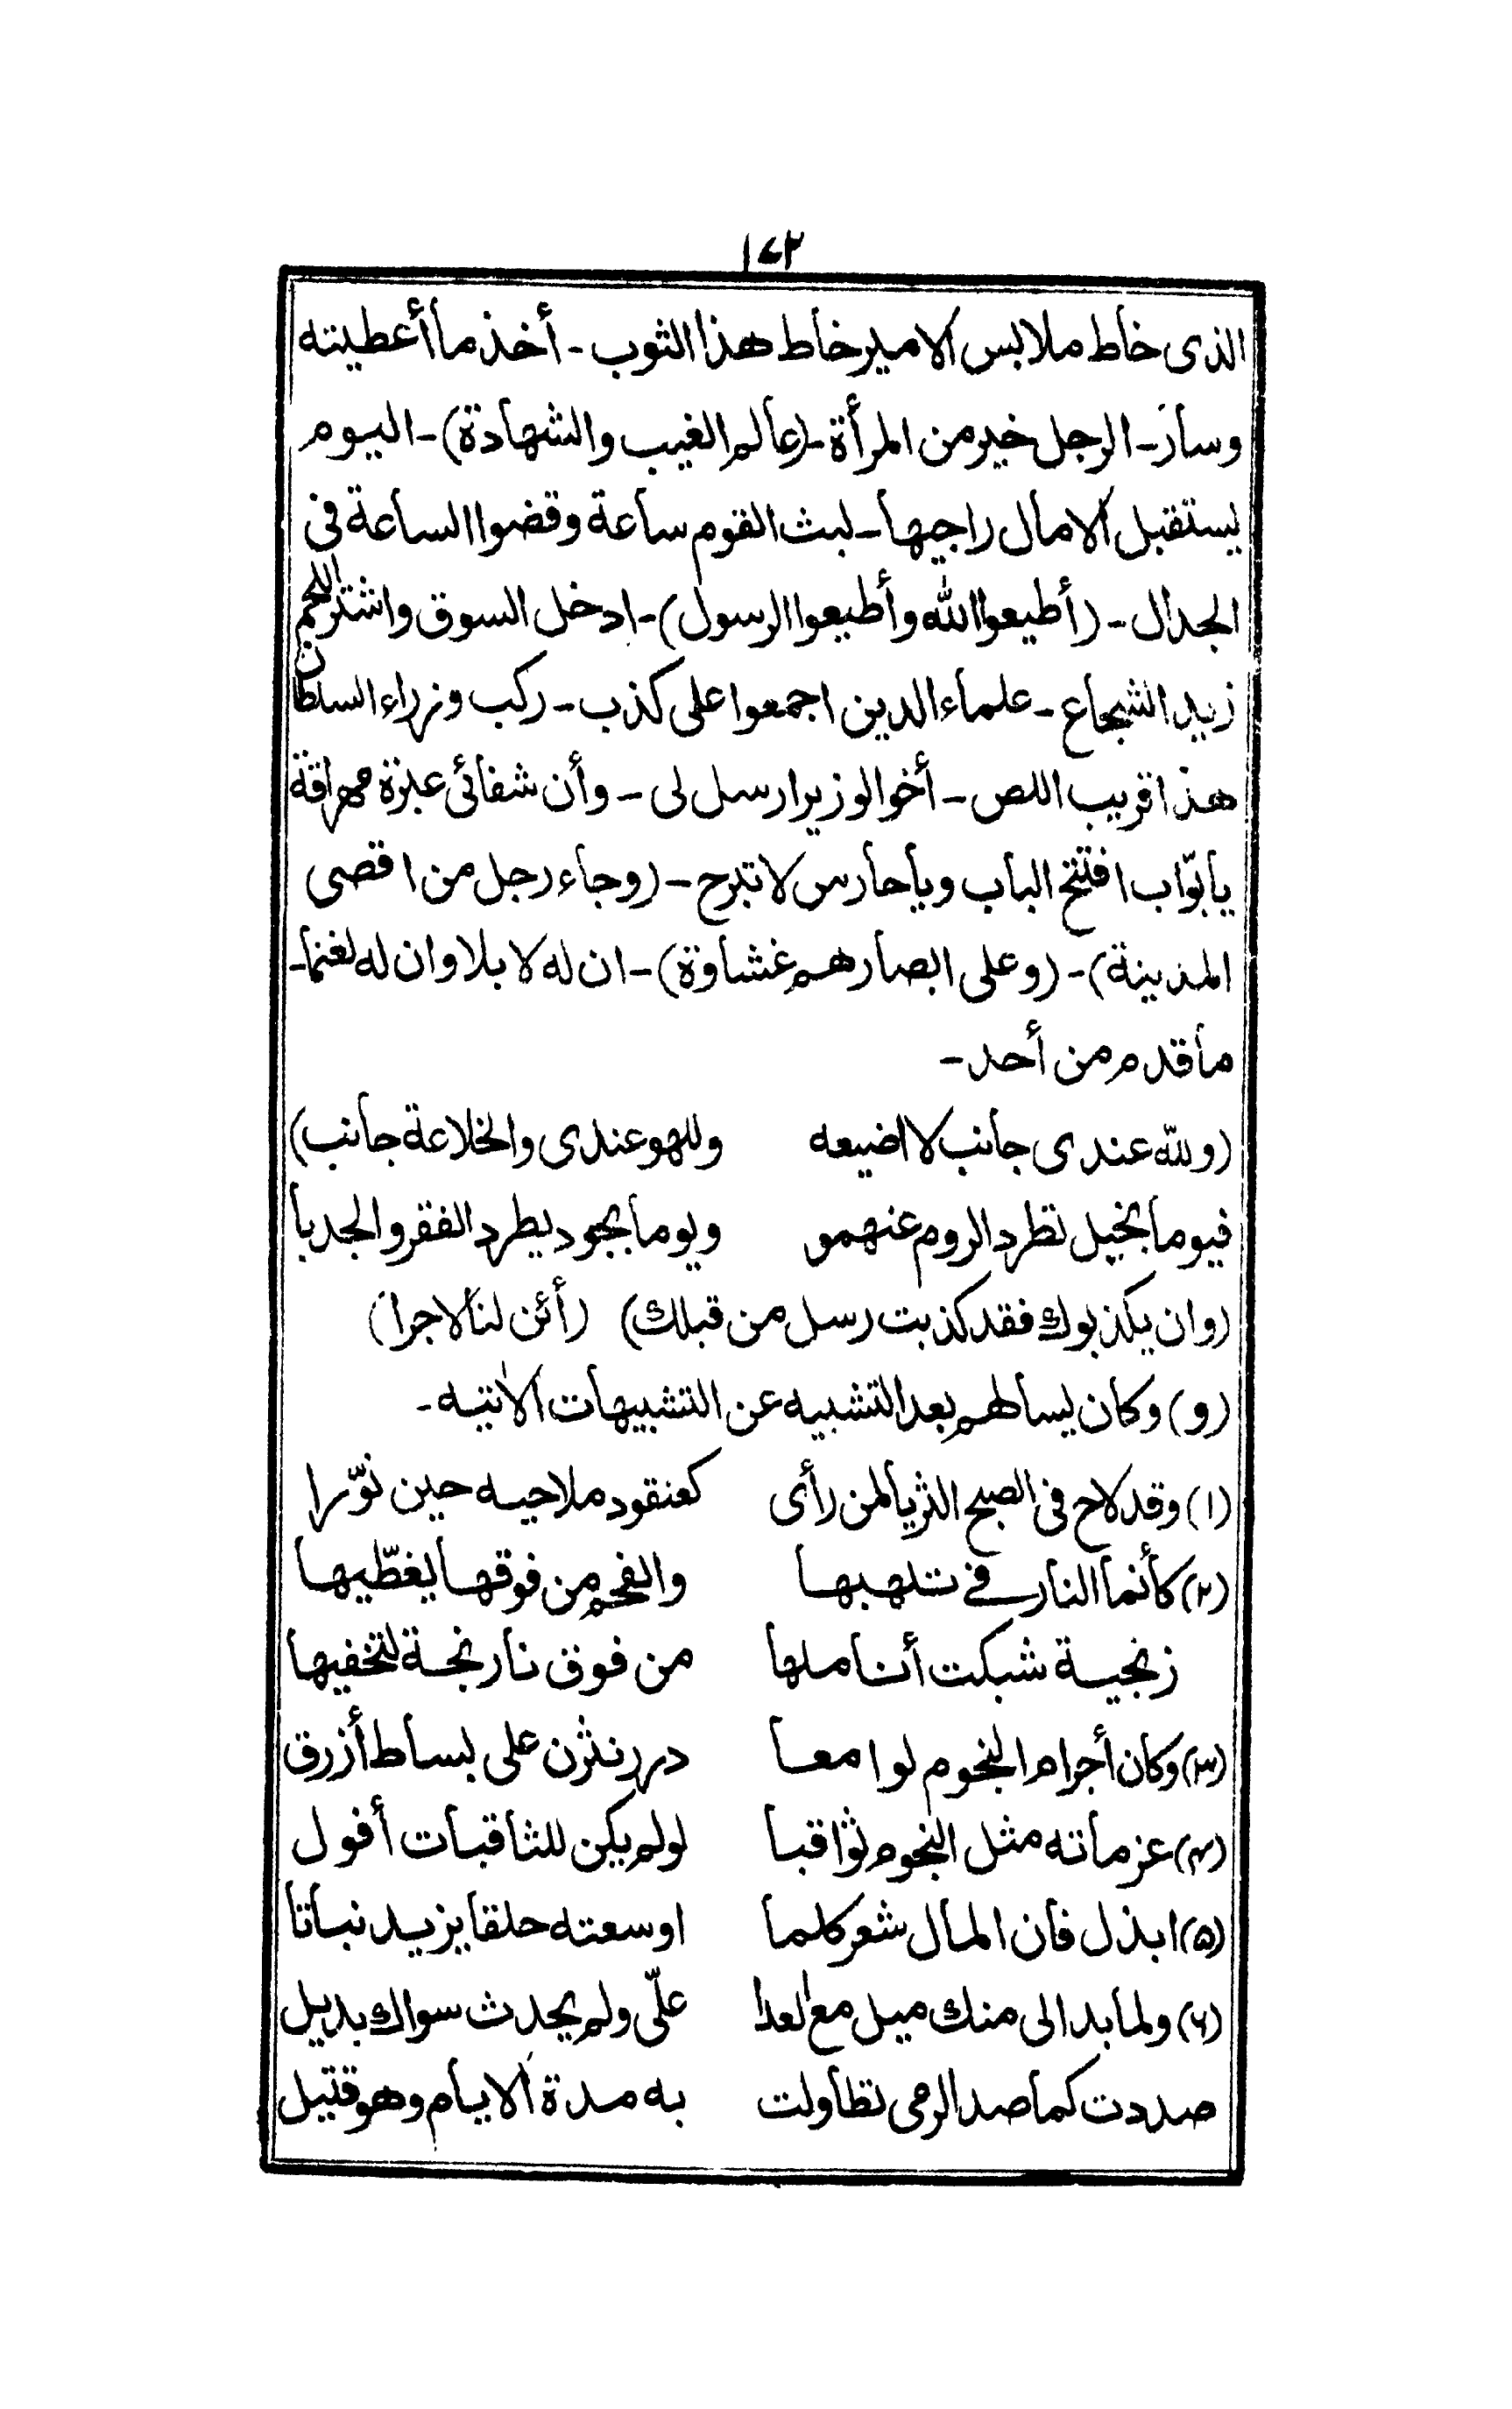 ١٧٢
الذى خاط ملابس الامير خاط هذا الثوب - أخذ ما أعطيته
وسار - الرجل خير من المرأة - (عالم الغيب والشهادة) - اليوم
يستقبل الامال راجيها - لبث القوم ساعة وقضوا الساعة فى
الجدال - (أطيعوا الله وأطيعوا الرسول) - ادخل السوق واشتر اللحم
زيد الشجاع - علماء الدين اجمعوا على كذب - ركب وزراء السلطان
هذا قريب اللص - أخو الوزير ارسل لى - وأن شفائى عبرة مهراقة
يا بوّاب افتح الباب ويا حارس لا تبرح - (وجاء رجل من اقصى
المدينة) - (وعلى ابصارهم غشاوة) - ان له لابلا وان له لغنما -
ما قدم من أحد -
(ولله عندى جانب لا اضيعه وللهو عندى والخلاعة جانب)
فيوما بخيل تطرد الروم عنهمو ويوما بجود يطرد الفقر والجدبا
(وان يكذبوك فقد كذبت رسل من قبلك) (أئن لنا لاجرا)
(و) وكان يسألهم بعد التشبيه عن التشبيهات الاتيه -
(١) وقد لاح فى الصبح الثريا لمن رأى كعنقود ملاحيه حين نوّرا
(٢) كأنما النار فى تلهبها والفحم من فوقها يغطّيها
زنجية شبكت أناملها من فوق نارنجة لتخفيها
(٣) وكان أجرام النجوم لوامعا درر نثرن على بساط أزرق
(٤) عزماته مثل النجوم ثواقبا لو لم يكن للثاقبات أفول
(٥) ابذل فان المال شعر كلما اوسعته حلقا يزيد نباتا
(٦) ولما بدا لى منك ميل مع العدا علّى ولم يحدث سواك بديل
صددت كما صد الرمى تطاولت به مدة الايام وهو قتيل